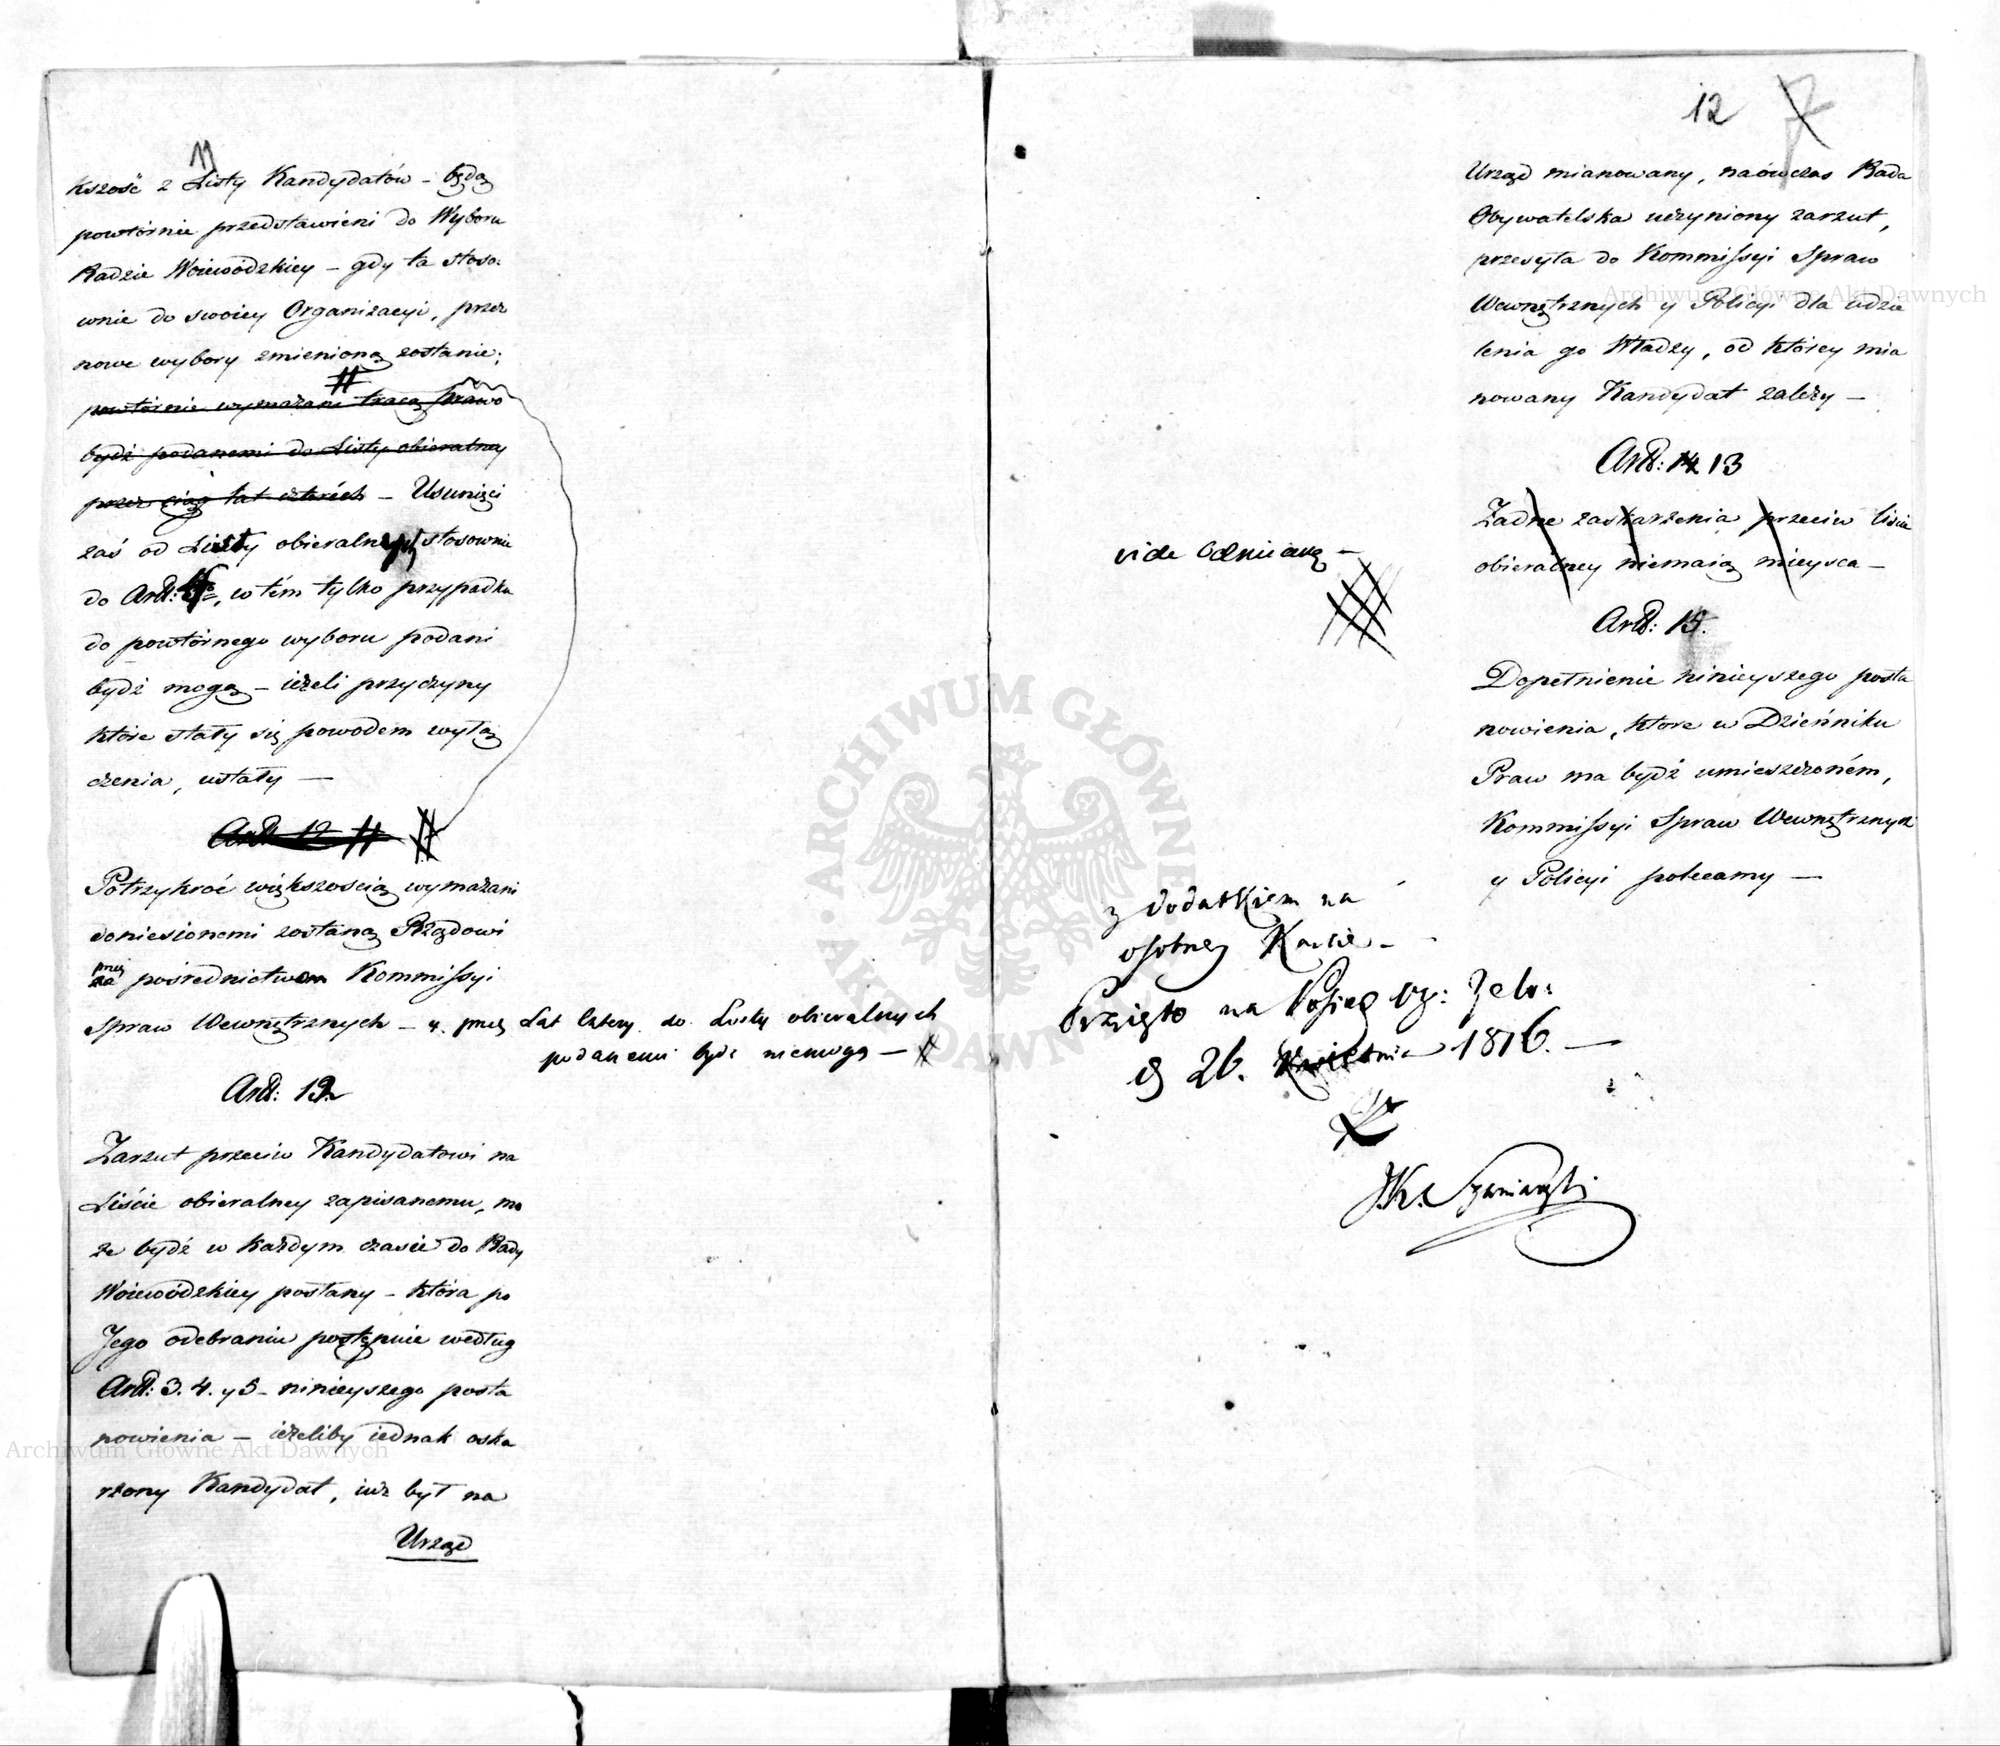 11
kszość z Listy Kandydatów – będą
powtórnie przedstawieni do Wyboru
Radzie Woiewódzkiey – gdy ta stoso:
wnie do swoiey Organizacyi, przez
nowe wybory zmienioną zostanie;
powtórnie wymazani tracą prawo
bydź podanemi do Listy obieralney
przez ciąg lat czterech – Usunięci
zaś od Listy obieralney stosownie
do Artt: w tém tylko przypadku
do powtórnego wyboru podani
bydź mogą – ieżeli przyczyny
które stały się powodem wyłą
czenia, ustały —
Artt 12
Potrzykroć większością wymazani
doniesionemi zostaną Rządowi
przez
za pośrednictwem Kommissyi
Spraw Wewnętrznych – y. przez Lat cztery do Listy obieralnych
podanemi bydź niemogą —
Artt: 12
Zarzut przeciw Kandydatowi na
Liście obieralney zapisanemu, mo
że bydź w każdym czasie do Rady
Woiewódzkiey posłany – która po
Jego odebraniu postępuie według
Artt: 3. 4. y 5 – ninieyszego posta
nowienia — ieżeliby iednak oska
rżony Kandydat, iuż był na
Urząd
12
Urząd mianowany, naówczas Rada
Obywatelska uczyniony zarzut,
przesyła do Kommissyi Spraw
Wewnętrznych y Policyi dla udzie
lenia go Władzy, od którey mia
nowany Kandydat zależy —
Artt: 14 13
Żadne zaskarżenia przeciw liście
obieralney niemaią mieysca –
vide odmianę –
Artt: 15.
Dopełnienie ninieyszego posta
nowienia, które w Dzienniku
Praw ma bydź umieszczoném,
Kommissyi Spraw Wewnętrznych
y Policyi polecamy —
z dodatkiem na
osobney Karcie –
Przyięto na Posiedz:
d 26. Kwietnia 1816. —
Archiwum Główne Akt Dawnych
Archiwum Główne Akt Dawnych
ARCHIWUM GŁÓWNE AKT DAWNYCH